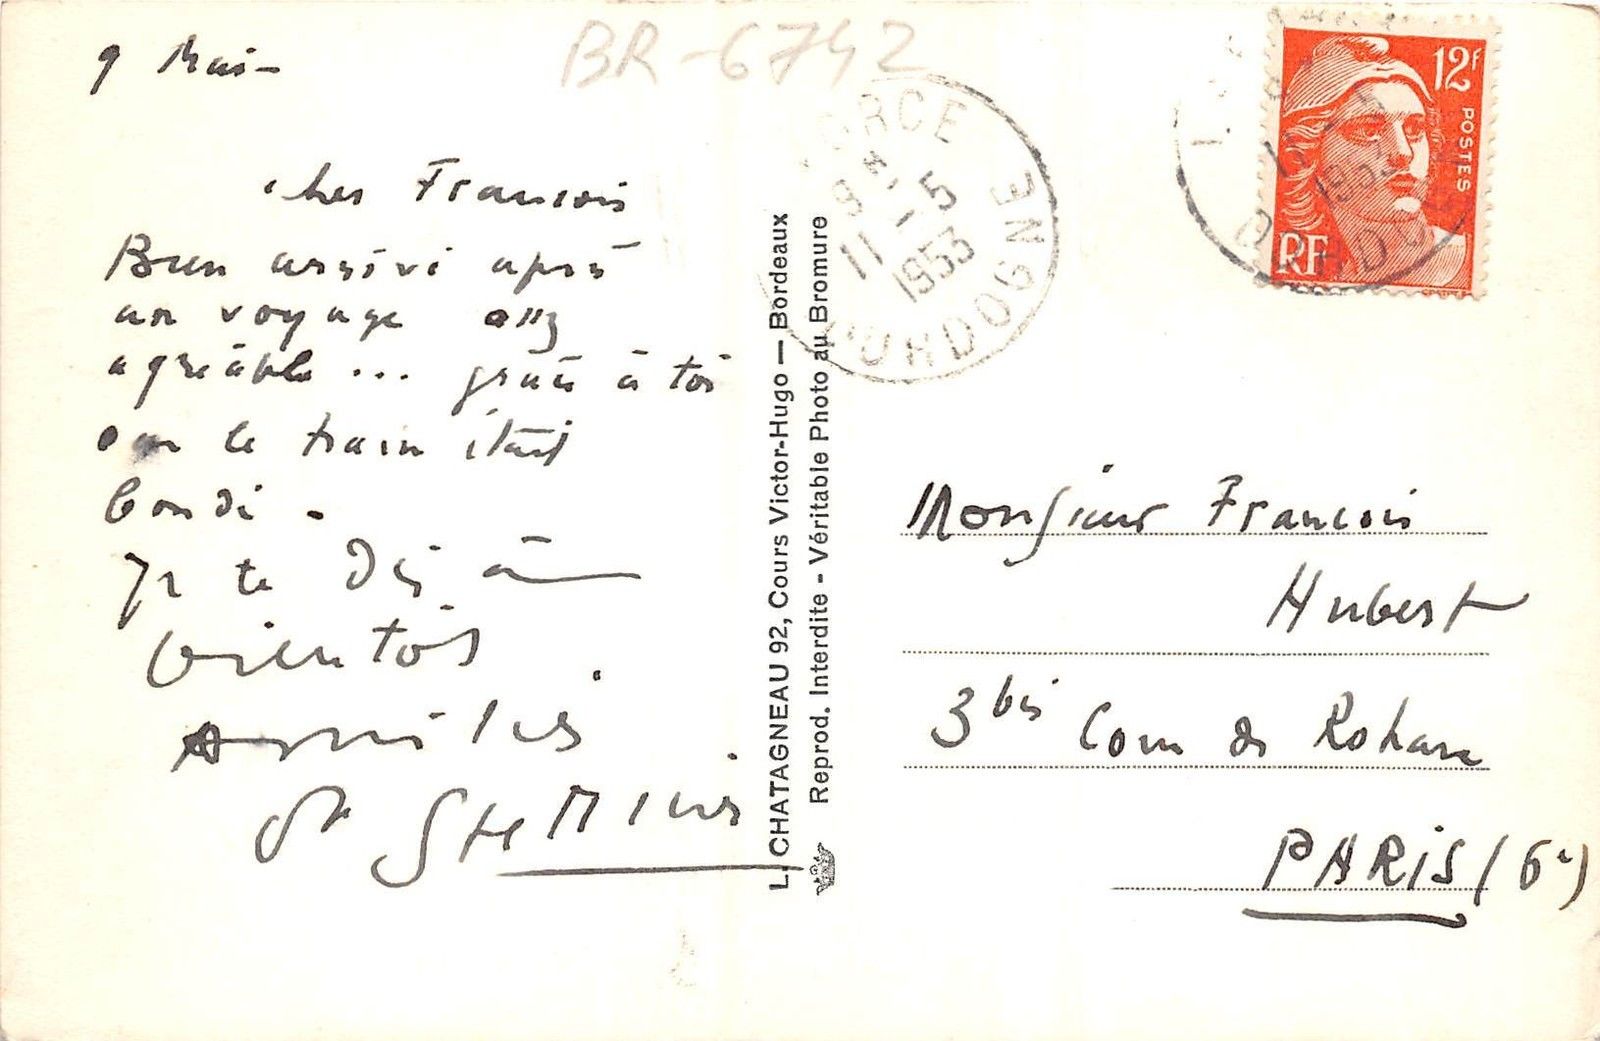 BR-6742
9 Mai -
cher Francois
Bien arrivé après
un voyage assez
agréable ... grâce à toi
car le train était
bondé .
Je te dis à
bientôt
Amitiés
12f
POSTES
RF
DORDOGNE
8 H
11 - 5
1953
DORDOGNE
L. CHATAGNEAU 92, Cours Victor-Hugo — Bordeaux
Reprod. Interdite - Véritable Photo au Bromure
Monsieur Francois
Hubert
3 bis Cour de Rohan
PARIS (6e)